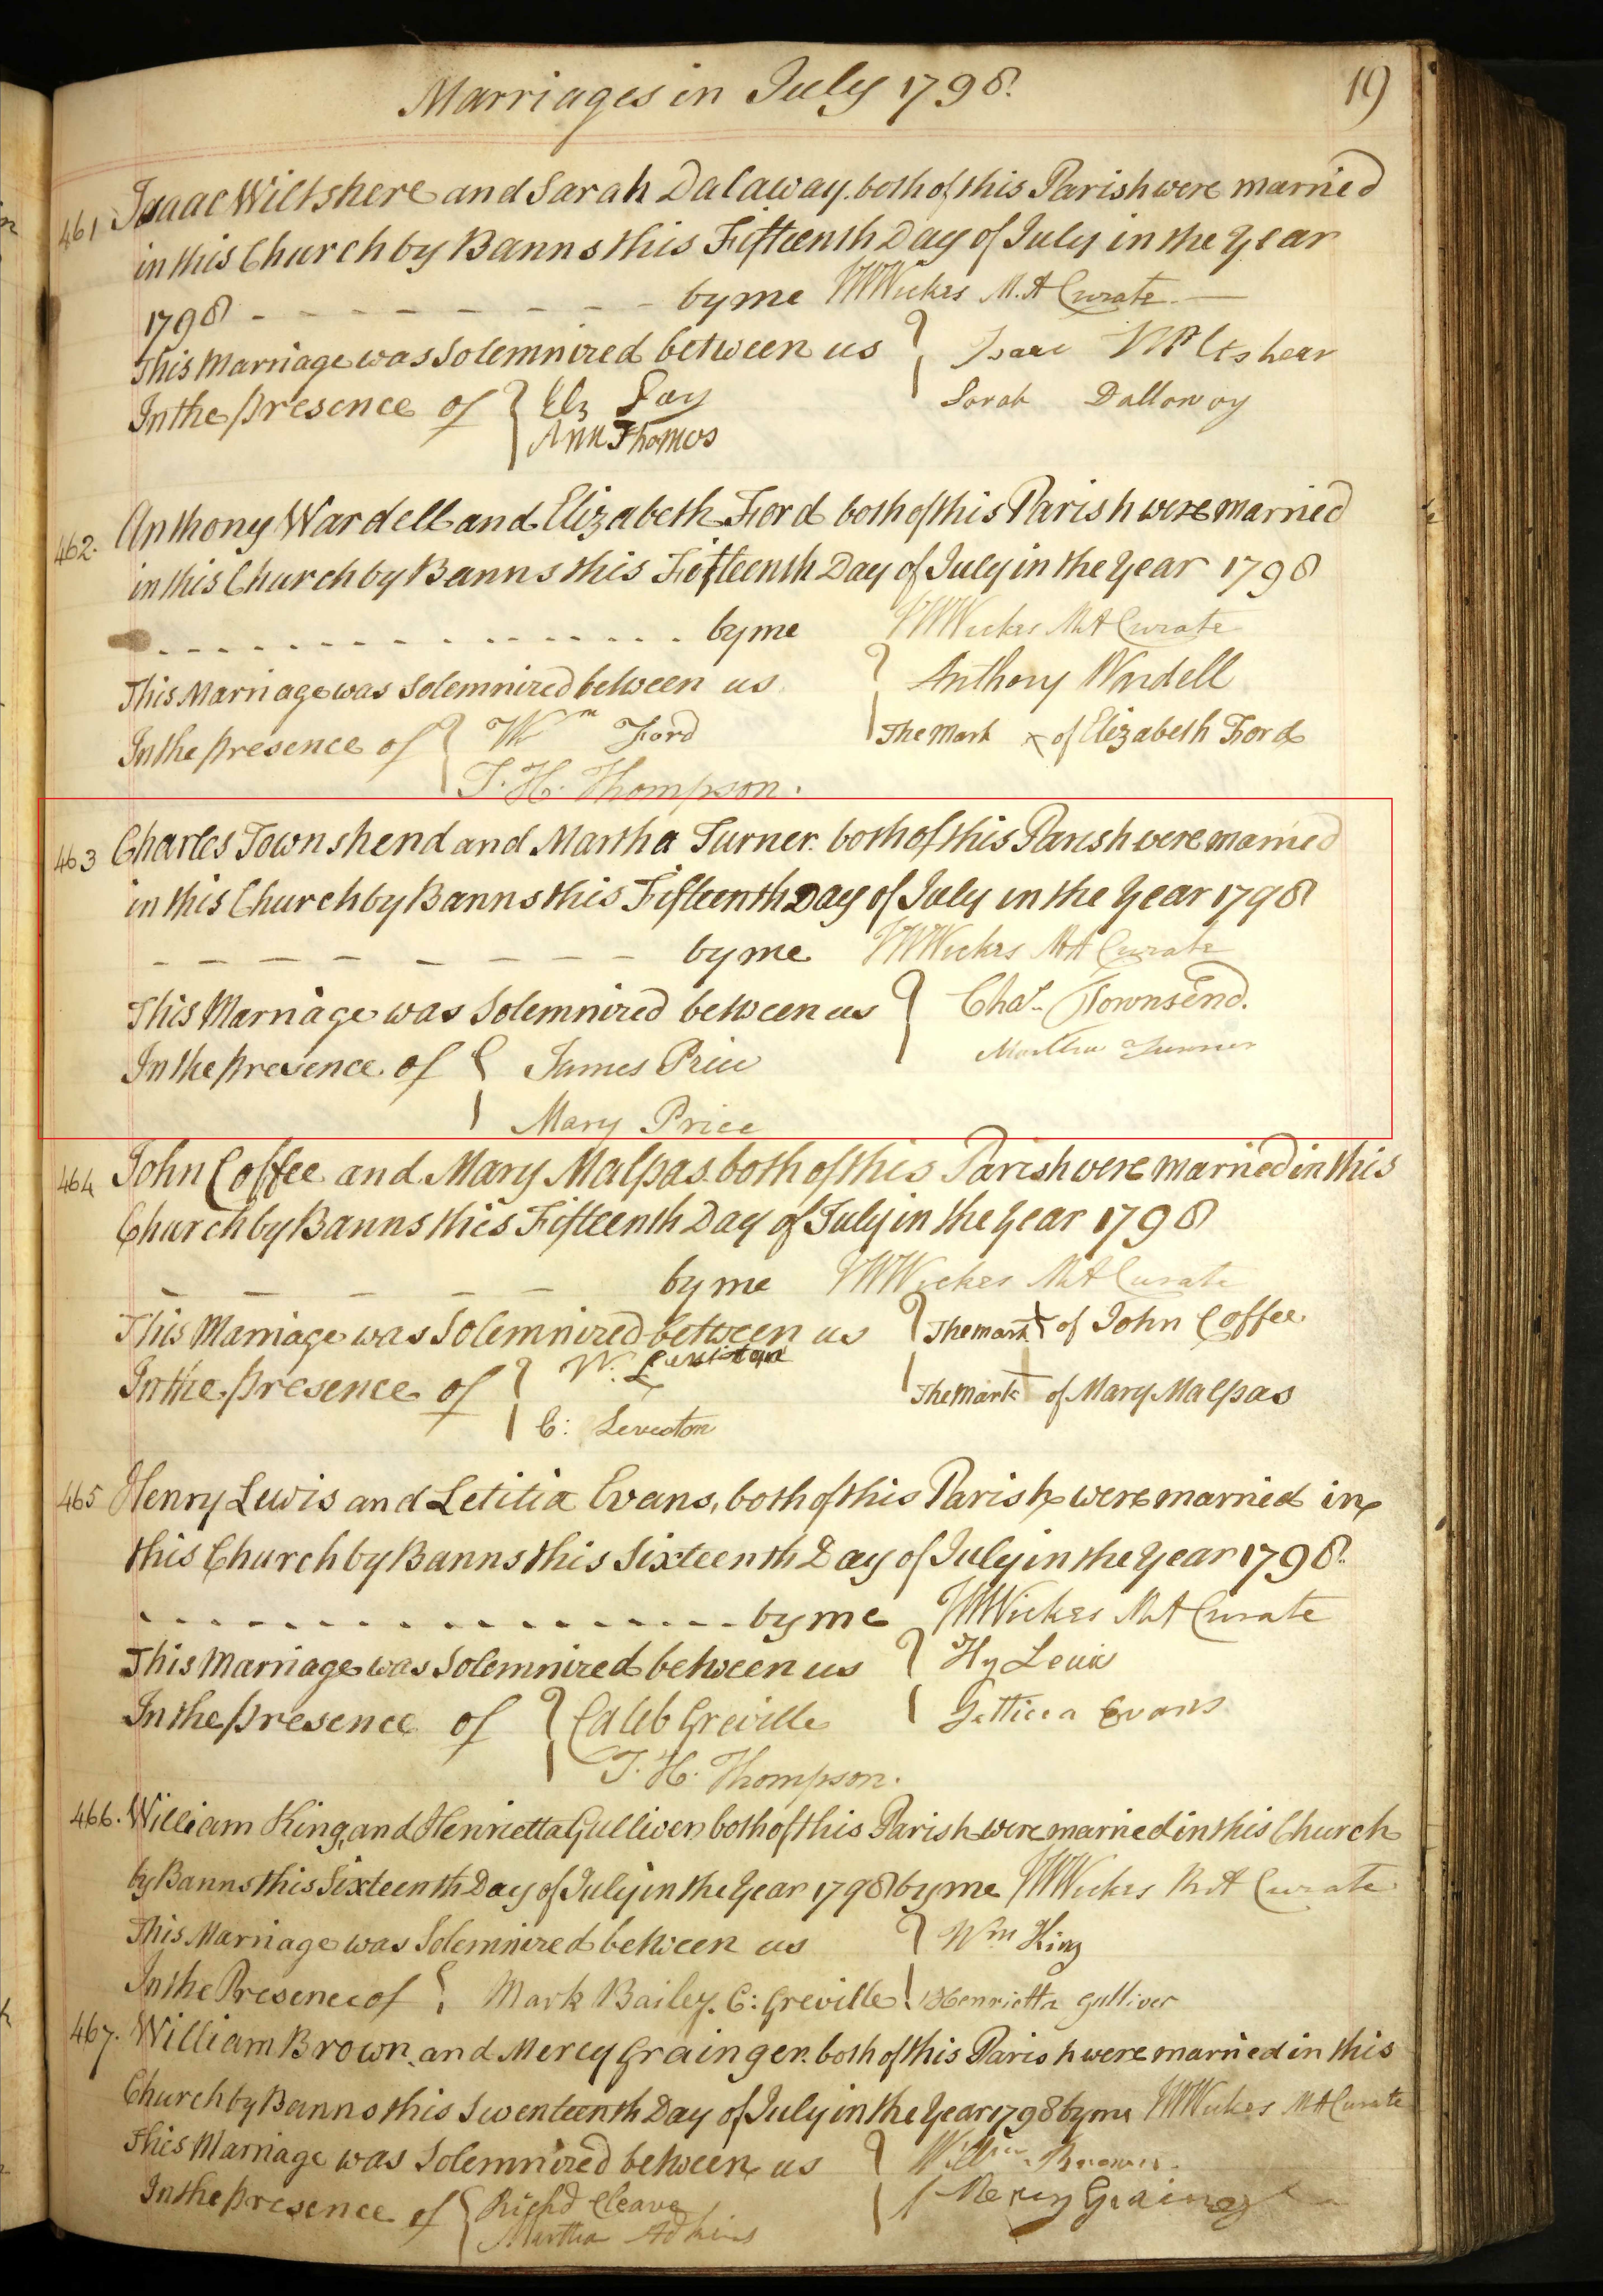 Marriages in July 1798. 19
461 Isaac Wiltshere and Sarah Dalaway. both of this Parish were married
in this Church by Banns this Fifteenth Day of July in the Year
1798 - - - - - - - - by me WWickes M.A Curate. —
This Marriage was Solemnized between us } Isaac Wiltshear
Sarah Dalloway
In the presence of { Elz Gay
Ann Thomas
462. Anthony Wardell and Elizabeth Ford both of this Parish were married
in this Church by Banns this Fifteenth Day of July in the Year 1798
- - - - - - - - - - - - - - - by me WWickes MA Curate
This Marriage was Solemnized between us } Anthony Wardell
In the presence of { Wm Ford The Mark x of Elizabeth Ford
T. H. Thompson.
463 Charles Townshend and Martha Turner. both of this Parish were married
in this Church by Banns this Fifteenth Day of July in the Year 1798
- - - - - - - - - by me WWickes MA Curate
This Marriage was Solemnized between us } Chas. Townsend.
Martha Turner
In the presence of { James Price
Mary Price
464 John Coffee and Mary Malpas. both of this Parish were married in this
Church by Banns this Fifteenth Day of July in the Year 1798
- - - - - by me WWickes MA Curate
This Marriage was Solemnized between us } The mark X of John Coffee.
In the presence of { W. Leviston The Mark of Mary Malpas
C: Leveston
465 Henry Lewis and Letitia Evans, both of this Parish were married in
this Church by Banns this Sixteenth Day of July in the Year 1798.
- - - - - - - - - - - - - - by me WWickes MA Curate
This Marriage was Solemnized between us } Hy Lewis
In the presence of { Caleb Greville Letticea Evans
T. H. Thompson.
466. William King and Henrietta Gulliver both of this Parish were married in this Church
by Banns this Sixteenth Day of July in the Year 1798 by me WWickes MA Curate
This Marriage was Solemnized between us } Wm King
In the Presence of { Mark Bailey. C: Greville Henrietta Gulliver
467. William Brown. and Mercy Grainger. both of this Parish were married in this
Church by Banns this Sventeenth Day of July in the Year 1798 by me WWickes MA Curate
This Marriage was Solemnized between us } Willm. Brown.
In the presence of { Richd Cleave Mercy Grainger
Martha Adkins